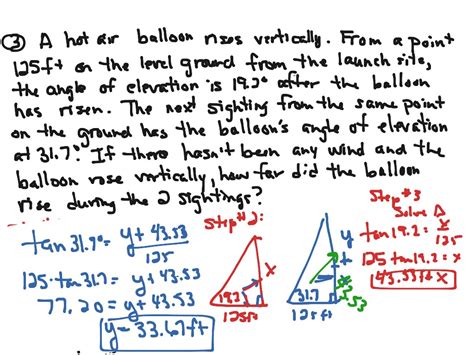 ③ A hot air balloon rises vertically. From a point
125ft on the level ground from the launch site,
the angle of elevation is 19.2° after the balloon
has risen. The next sighting from the same point
on the ground has the balloon's angle of elevation
at 31.7°. If there hasn't been any wind and the
balloon rose vertically, how far did the balloon
rise during the 2 sightings?
tan 31.7° = y + 43.53
125
125·tan31.7 = y + 43.53
77.20 = y + 43.53
y = 33.67ft
Step #2:
19.2
x
125ft
y
+
31.7
125ft
Step #3
Solve △
tan 19.2 = x
125
125 tan 19.2 = x
43.53ft = x